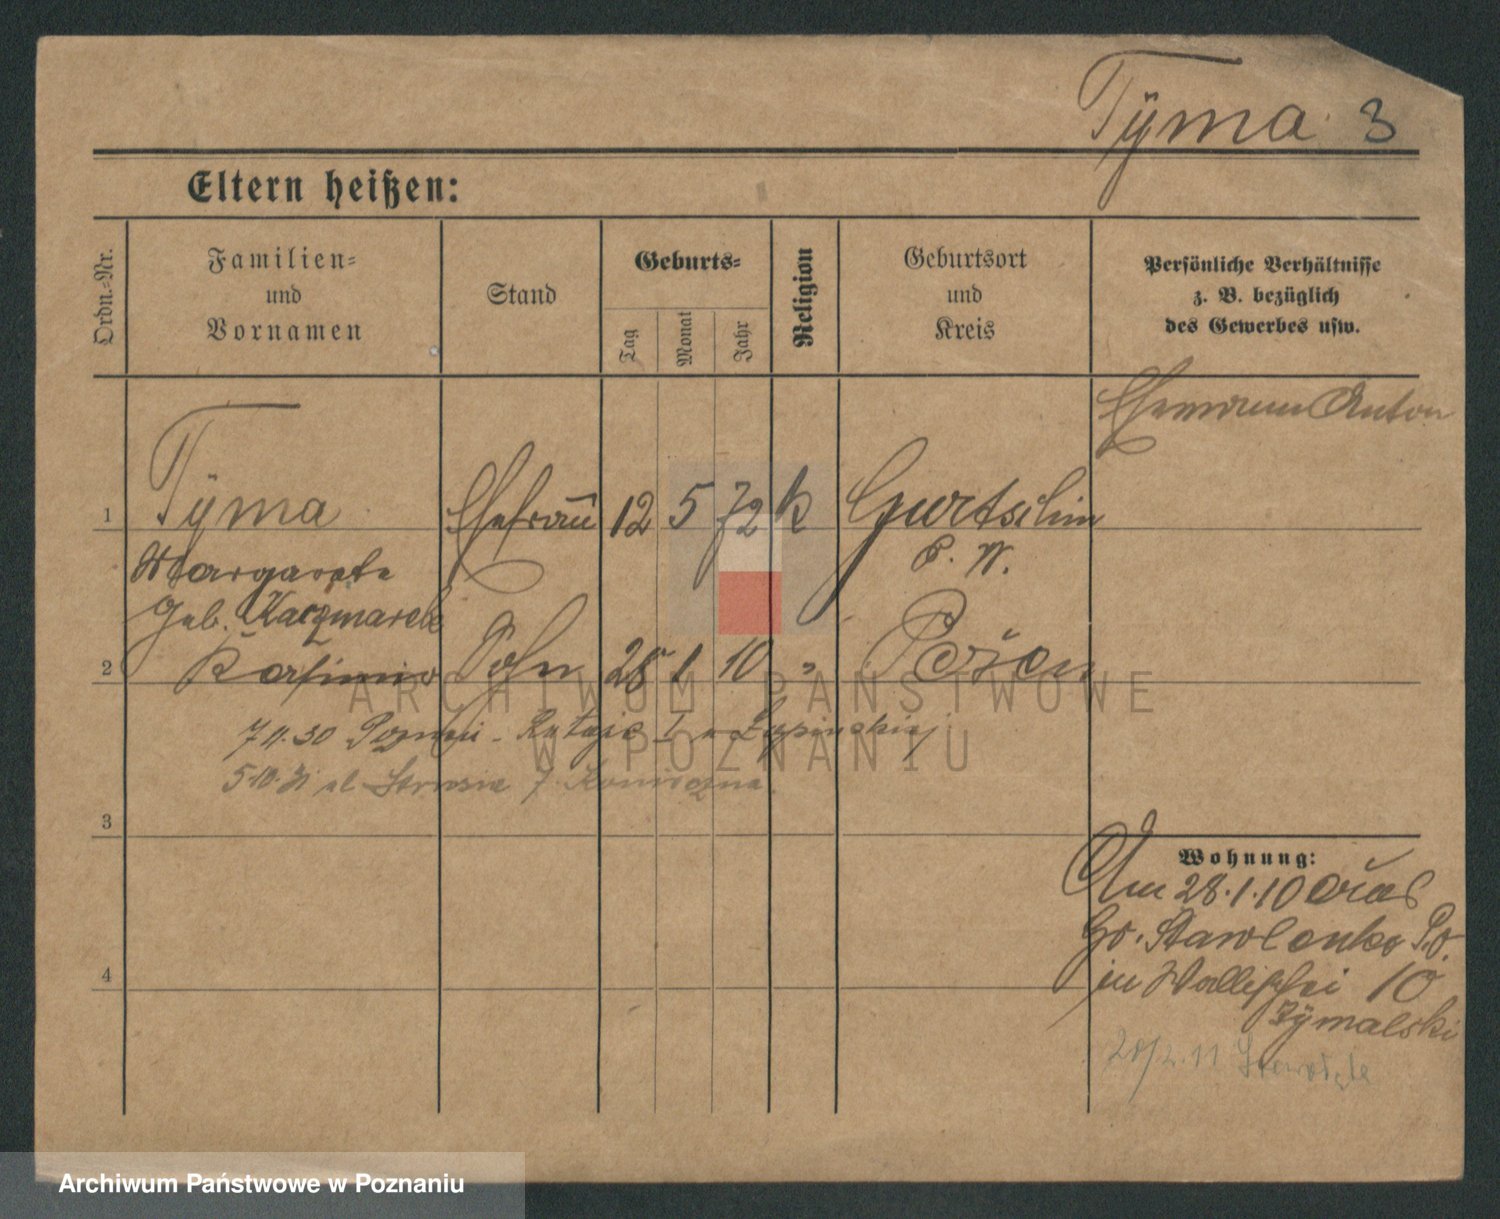 Tÿma 3
Eltern heißen:
Ordn.-Nr.
Familien-
und
Vornamen
Stand
Geburts-
Tag
Monat
Jahr
Religion
Geburtsort
und
Kreis
Persönliche Verhältnisse
z. B. bezüglich
des Gewerbes usw.
Ehemann Anton
1 Tÿma Ehefrau 12 5 72 k Gurtschin
Margarete P. W.
geb. Kaczmarek
2 Kasimir Sohn 28 1 10 " Posen
7.11.30 Rataje 1
5.10.31 ul 7
3
Wohnung:
Am 28.1.10 aus
Gr. P.O.
in Wallischei 10
4
Zÿmalski
20/2.11
ARCHIWUM PAŃSTWOWE
W POZNANIU
Archiwum Państwowe w Poznaniu